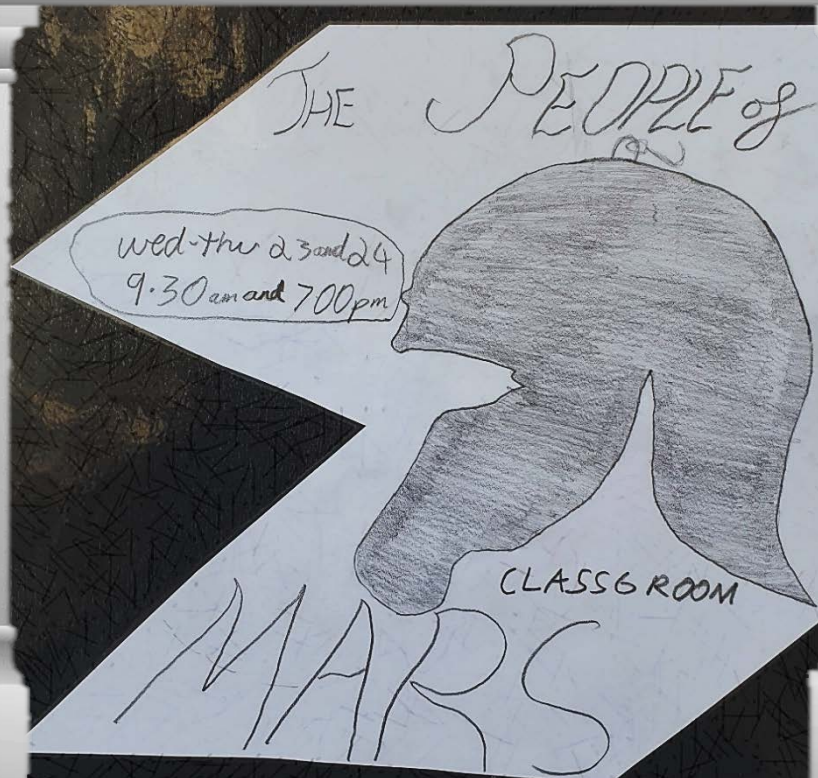 THE PEOPLE of
wed-thu 23 and 24
9.30 am and 700pm
CLASS 6 ROOM
MARS